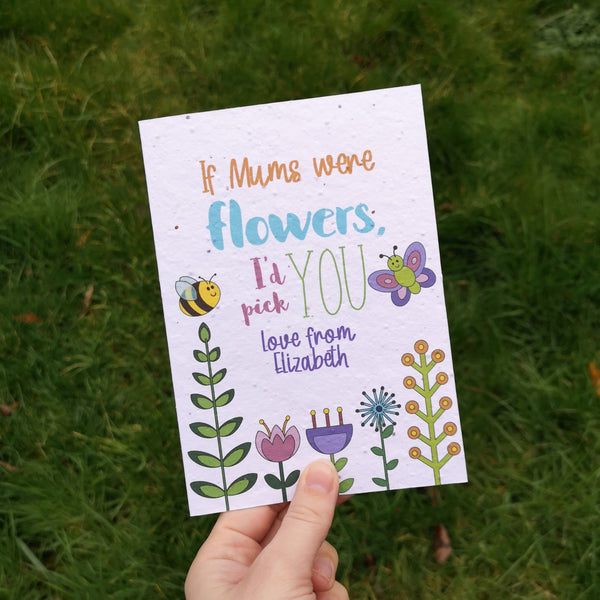 If Mums were
flowers,
I'd pick YOU
Love from
Elizabeth